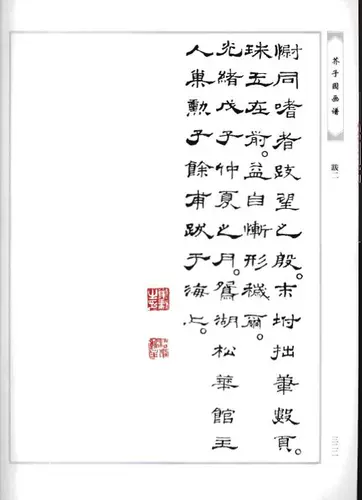 芥子园画谱
跋二
慰同嗜者跂望之殷。末坿拙筆數頁。
珠玉在前。益自慚形穢爾。
光緒戊子仲夏之月。鴛湖松華館主
人巢勳子餘甫跋于海上。